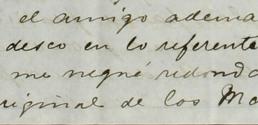 el amigo adema
desco en lo referente
me negué redonda
riginal de los Ma